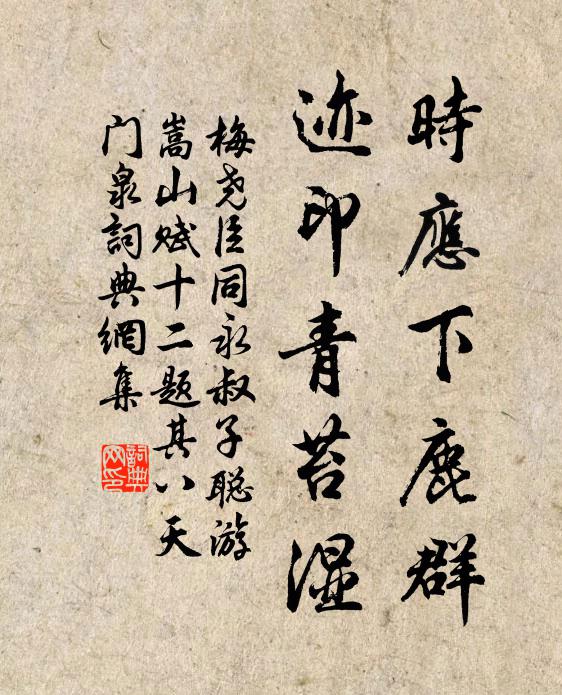 時應下鹿群
迹印青苔濕
梅尧臣同永叔子聪游
嵩山赋十二题其八天
门泉詞典網集
詞典
网印